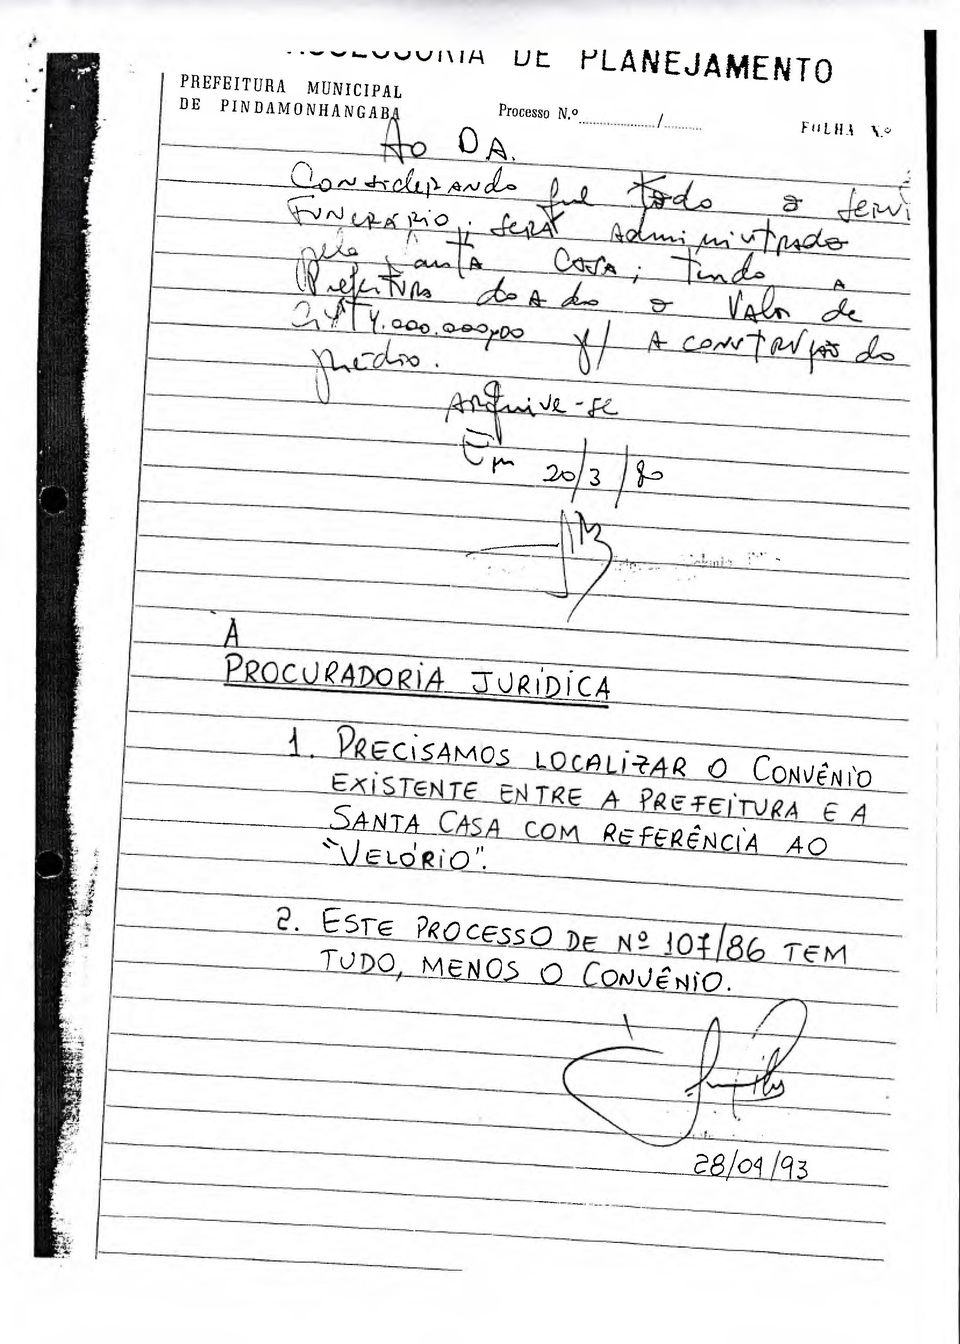 DE PLANEJAMENTO
PREFEITURA MUNICIPAL
DE PINDAMONHANGABA
Processo N.º ........... / .........
FOLHA N.º
Ao DA.
Considerando que todo o servi
Funerário, será administrado
pela Santa Casa; tendo a
Prefeitura doado o valor de
4.000.000,00 p/ a construção do
prédio.
Arquive-se
Em 20/3/80
À
PROCURADORIA JURÍDICA
1. PRECISAMOS LOCALIZAR O CONVÊNIO
EXISTENTE ENTRE A PREFEITURA E A
SANTA CASA COM REFERÊNCIA AO
"VELÓRIO".
2. ESTE PROCESSO DE Nº 107/86 TEM
TUDO, MENOS O CONVÊNIO.
28/04/93